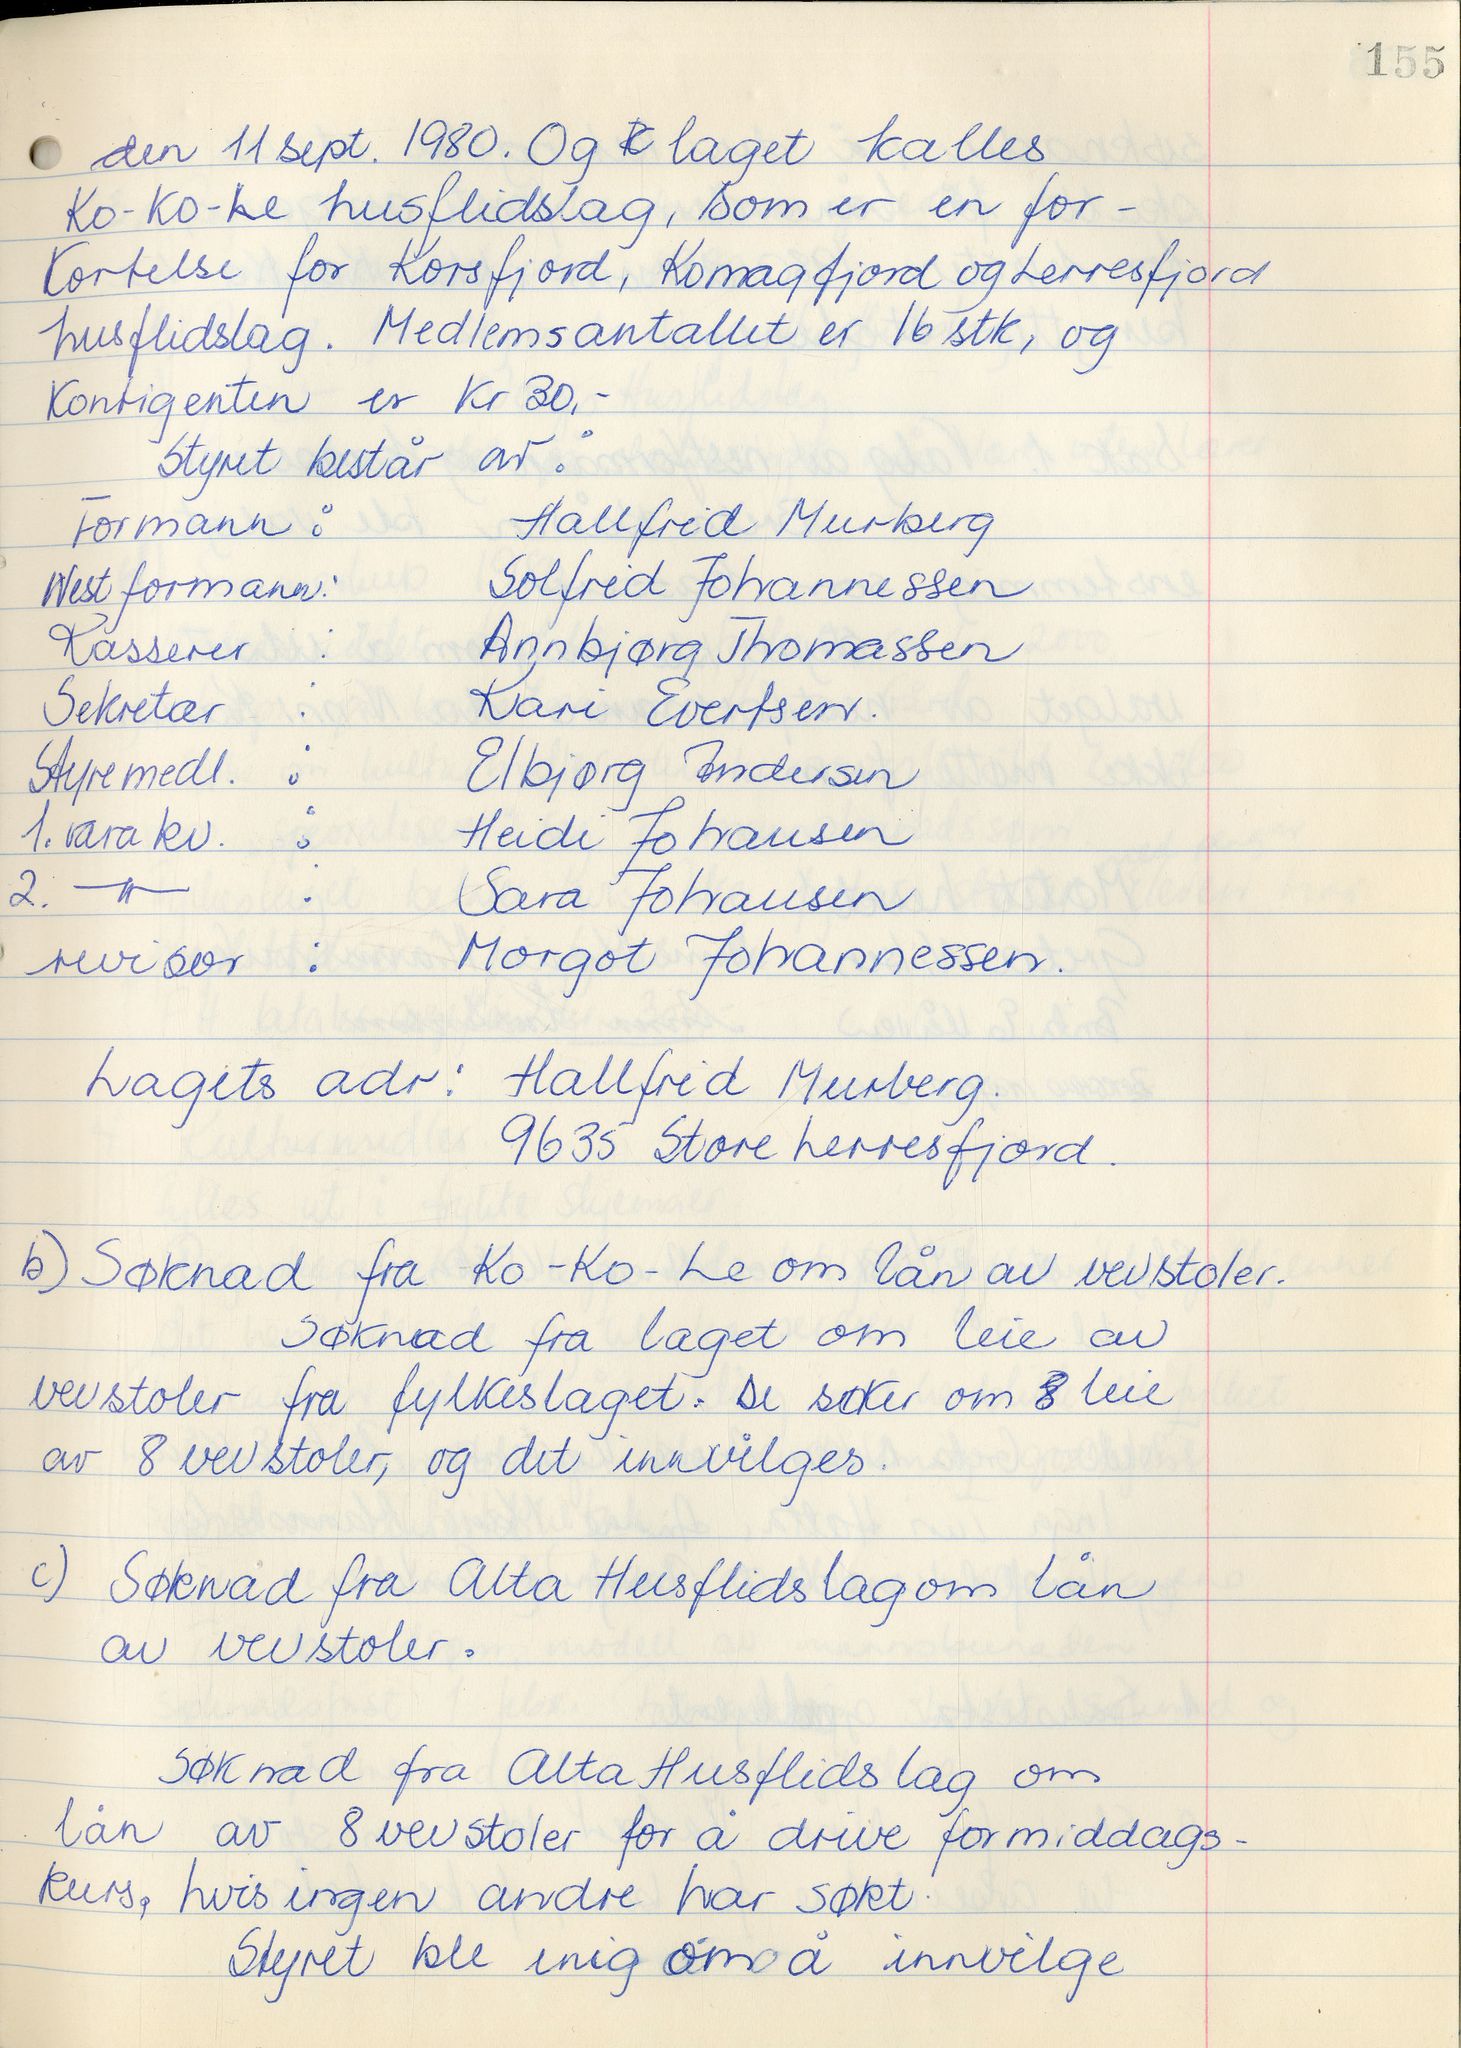 155
den 11 sept. 1980. Og laget kalles
Ko-Ko-Le husflidslag, som er en for-
kortelse for Korsfjord, Komagfjord og Lerresfjord
husflidslag. Medlemsantallet er 16 stk, og
Kontigenten er kr 30,-
Styret består av:
Formann: Hallfrid Murberg
Nestformann: Solfrid Johannessen
Kasserer : Annbjørg Thomassen
Sekretær : Kari Evertsen.
Styremedl. : Elbjørg Andersen
1. vara kv. : Heidi Johansen
2. -"- : Sara Johansen
revisor : Morgot Johannessen.
Lagets adr: Hallfrid Murberg.
9635 Store Lerresfjord.
b) Søknad fra Ko-Ko-Le om lån av vevstoler.
Søknad fra laget om leie av
vevstoler fra fylkeslaget. De søker om leie
av 8 vevstoler, og det innvilges.
c) Søknad fra Alta Husflidslag om lån
av vevstoler.
Søknad fra Alta Husflidslag om
lån av 8 vevstoler for å drive formiddags-
kurs, hvis ingen andre har søkt.
Styret ble enig om å innvilge